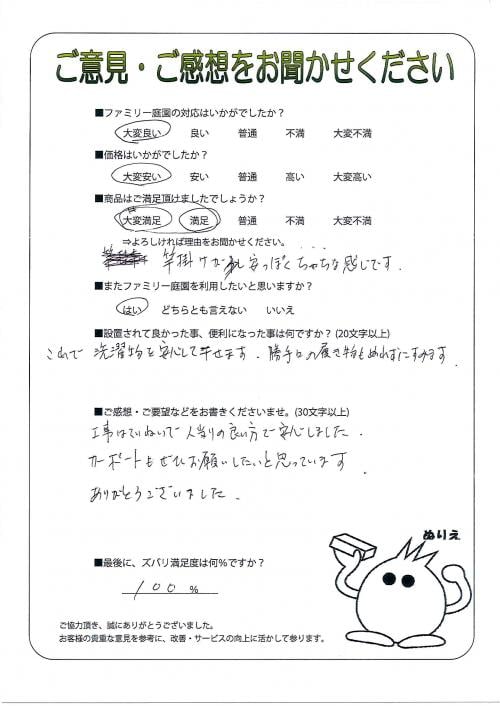 ご意見・ご感想をお聞かせください
■ファミリー庭園の対応はいかがでしたか?
大変良い 良い 普通 不満 大変不満
■価格はいかがでしたか?
大変安い 安い 普通 高い 大変高い
■商品はご満足頂けましたでしょうか?
大変満足 満足 普通 不満 大変不満
⇒よろしければ理由をお聞かせください。
竿掛けが少し安っぽくちゃちな感じです.
■またファミリー庭園を利用したいと思いますか?
はい どちらとも言えない いいえ
■設置されて良かった事、便利になった事は何ですか?(20文字以上)
これで 洗濯物を安心して干せます. 勝手口の履き物もぬれずにすみます.
■ご感想・ご要望などをお書きくださいませ。(30文字以上)
工事はていねいで 人当りの良い方で安心しました.
カーポートもぜひお願いしたいと思っています
ありがとうございました.
ぬりえ
■最後に、ズバリ満足度は何%ですか?
100 %
ご協力頂き、誠にありがとうございました。
お客様の貴重な意見を参考に、改善・サービスの向上に活かして参ります。